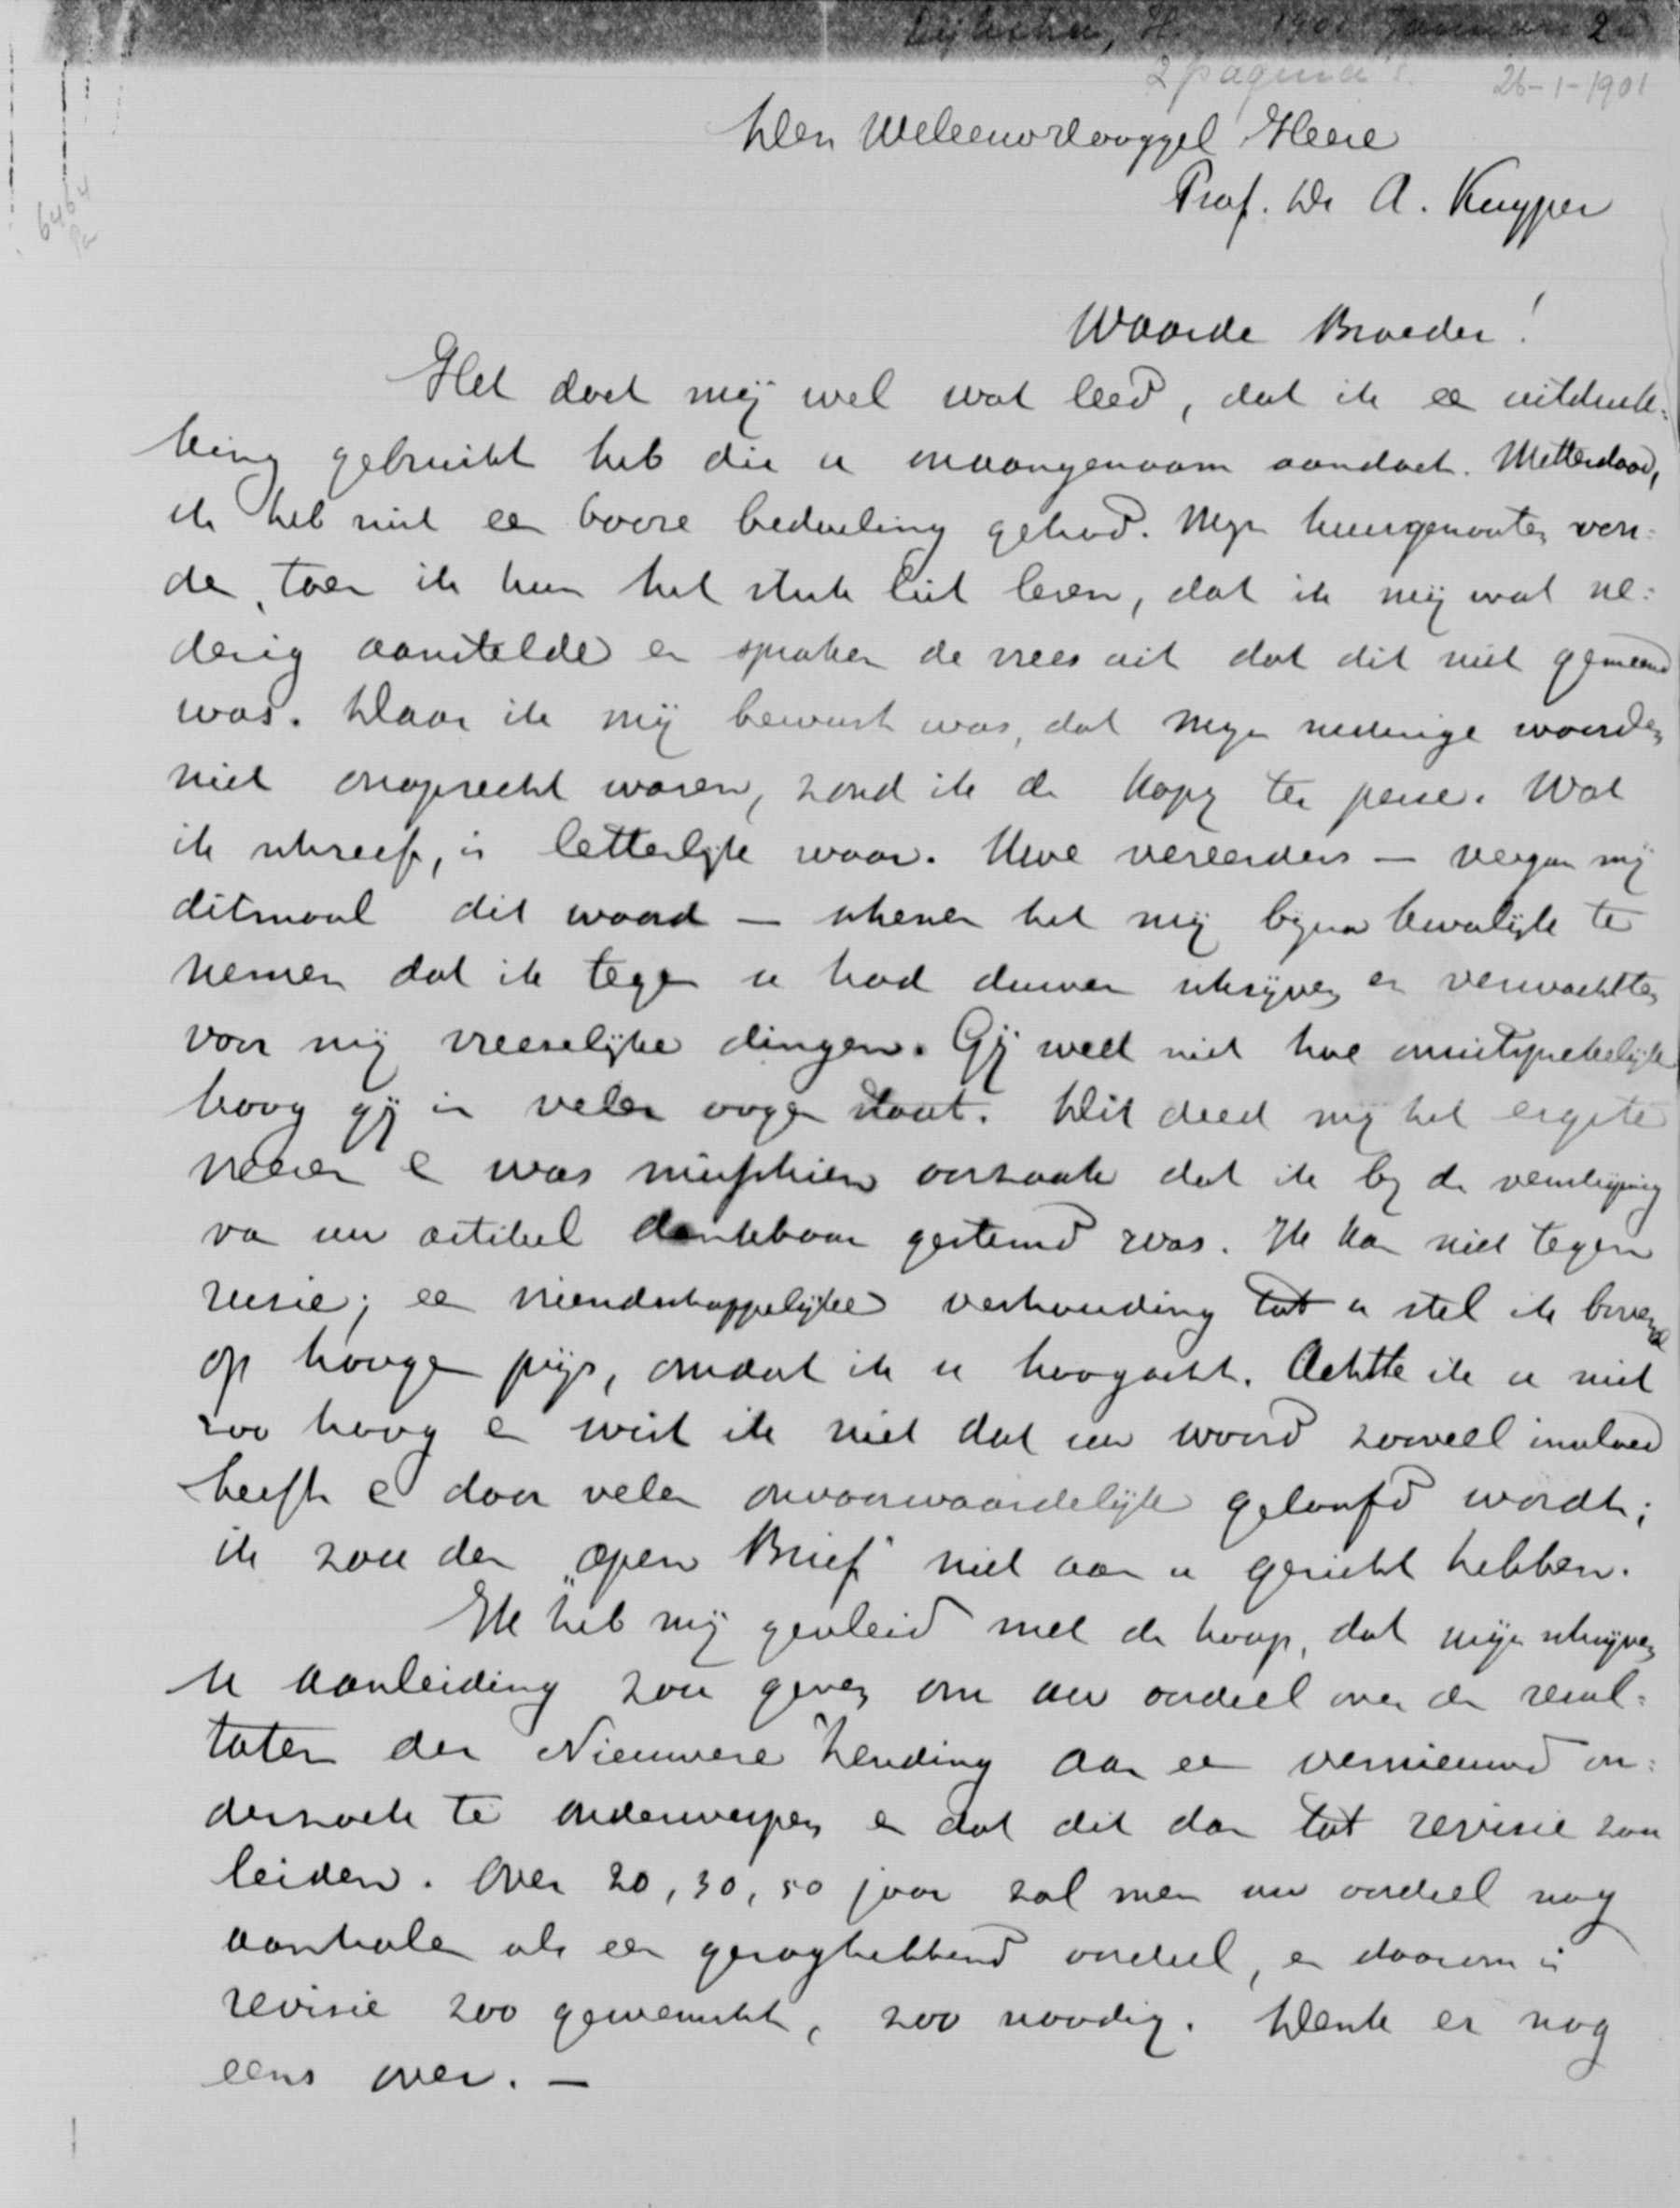 Dijkstra, H. 1901 Januari 26
2 pagina's. 26-1-1901
6464
Den Weleerwdooggel Heere
Prof. Dr A. Kuyper
Waarde Broeder!
Het doet mij wel wat leed, dat ik ee uitdruk=
king gebruikt heb die u onaangenaam aandoet. Metterdaad,
ik heb niet een booze bedoeling gehad. Mijn huisgenooten von=
den, toen ik hun het stuk liet lezen, dat ik mij wat ne=
derig aanstelde en spraken de vrees uit dat dit niet gemeend
was. Daar ik mij bewust was, dat mijn nederige woorden
niet onoprecht waren, zond ik de kopy ter perse. Wat
ik schreef, is letterlijk waar. Uwe vereerders — vergun mij
ditmaal dit woord — schenen het mij bijna kwalijk te
nemen dat ik tegen u had durven schrijven en verwachtten
voor mij vreeselijke dingen. Gij weet niet hoe onuitsprekelijk
hoog gij in veler oogen staat. Dit deed mij het ergste
vreezen en was misschien oorzaak dat ik bij de verschijning
van uw artikel dankbaar gestemd was. Ik kan niet tegen
ruzie; ee vriendschappelijke verhouding tot u stel ik bovend
op hoogen prijs, omdat ik u hoogacht. Achtte ik u niet
zoo hoog en wist ik niet dat uw woord zooveel invloed
heeft en door velen onvoorwaardelijk geloofd wordt;
ik zou den „open Brief" niet aan u gericht hebben.
Ik heb mij gevleid met de hoop, dat mijn schrijven
u aanleiding zou geven om uw oordeel over de resul=
taten der Nieuwere Zending aan een vernieuwd on=
derzoek te onderwerpen en dat dit dan tot revisie zou
leiden. Over 20, 30, 50 jaar zal men uw oordeel nog
aanhalen als een gezaghebbend oordeel, en daarom is
revisie zoo gewenscht, zoo noodig. Denk er nog
eens over. —